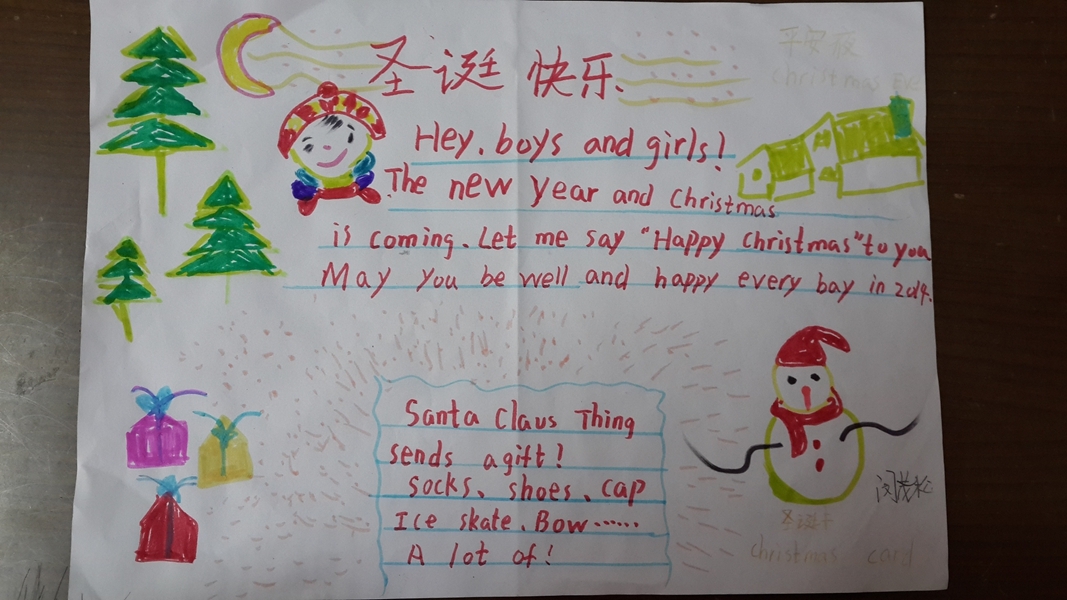 圣诞快乐
平安夜
christmas Eve
Hey, boys and girls!
The new year and Christmas
is coming. Let me say "Happy christmas" to you
May you be well and happy every bay in 2014.
Santa Claus Thing
sends a gift!
socks、shoes、cap
Ice skate、Bow······
A lot of!
圣诞卡
christmas card